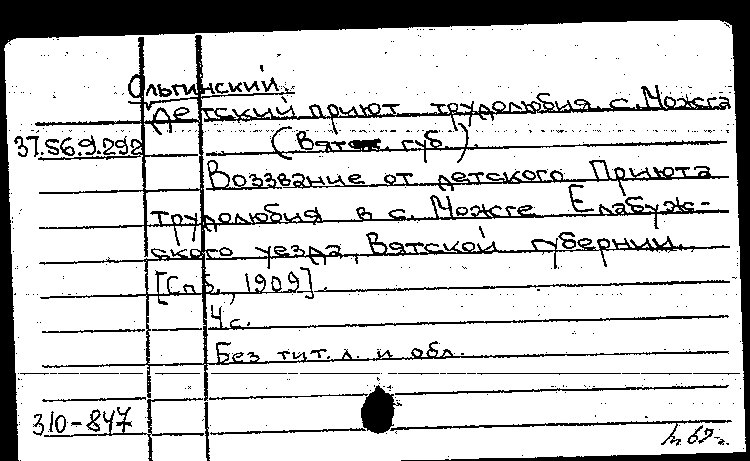 Ольгинский
детский приют трудолюбия с. Можга
37.56.9.292 (Вятск. губ.).
Воззвание от детского Приюта
трудолюбия в с. Можге Елабуж-
ского уезда, Вятской губернии.
[Спб., 1909].
4 с.
Без тит. л. и обл.
310-847